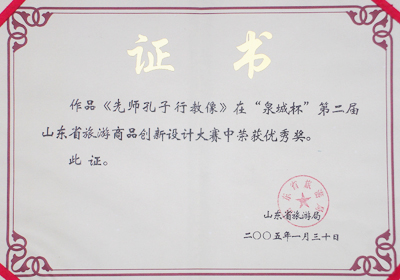 证书
作品《先师孔子行教像》在“泉城杯”第二届
山东省旅游商品创新设计大赛中荣获优秀奖。
此证。
山东省旅游局
二〇〇五年一月三十日